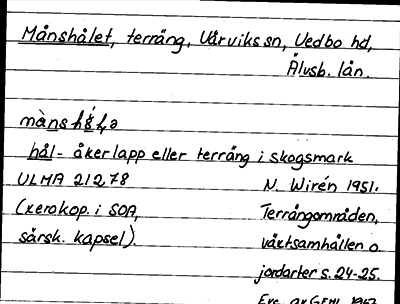 Månshålet, terräng, Vårviks sn, Vedbo hd,
Älvsb. län.
hål- åkerlapp eller terräng i skogsmark
ULMA 21278 N. Wirén 1951.
(xerokop. i SOA, Terrängområden,
särsk. kapsel) växtsamhällen o
jordarter s. 24-25.
Exc. av